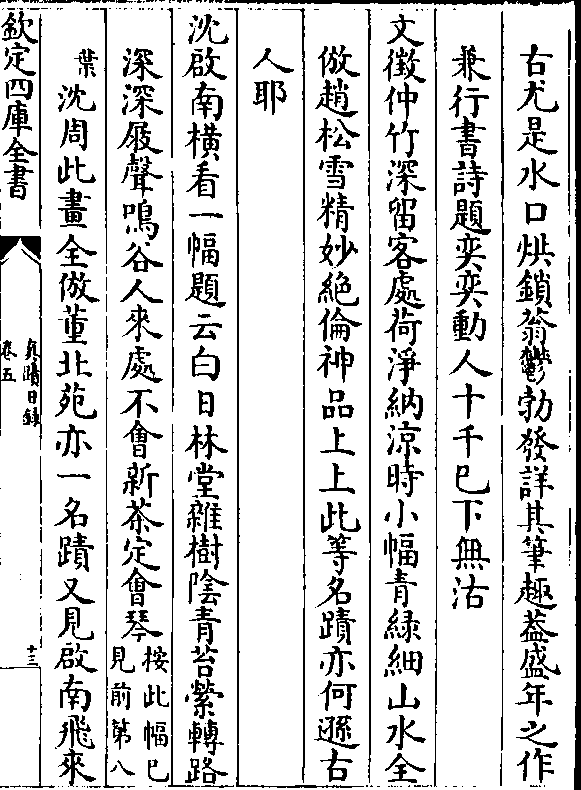 古尤是水口烘鎖蓊鬱勃發詳其筆趣葢盛年之作
兼行書詩題奕奕動人十千已下無沽
文徴仲竹深留客處荷淨納涼時小幅青緑細山水全
倣趙松雪精妙絶倫神品上上此等名蹟亦何遜古
人耶
沈啟南横看一幅題云白日林堂雜樹陰青苔縈轉路
深深屐聲鳴谷人來處不會新茶定會琴
按此幅已
見前第八
葉
沈周此畫全倣董北苑亦一名蹟又見啟南飛來
欽定四庫全書
真蹟日錄
卷五
十三